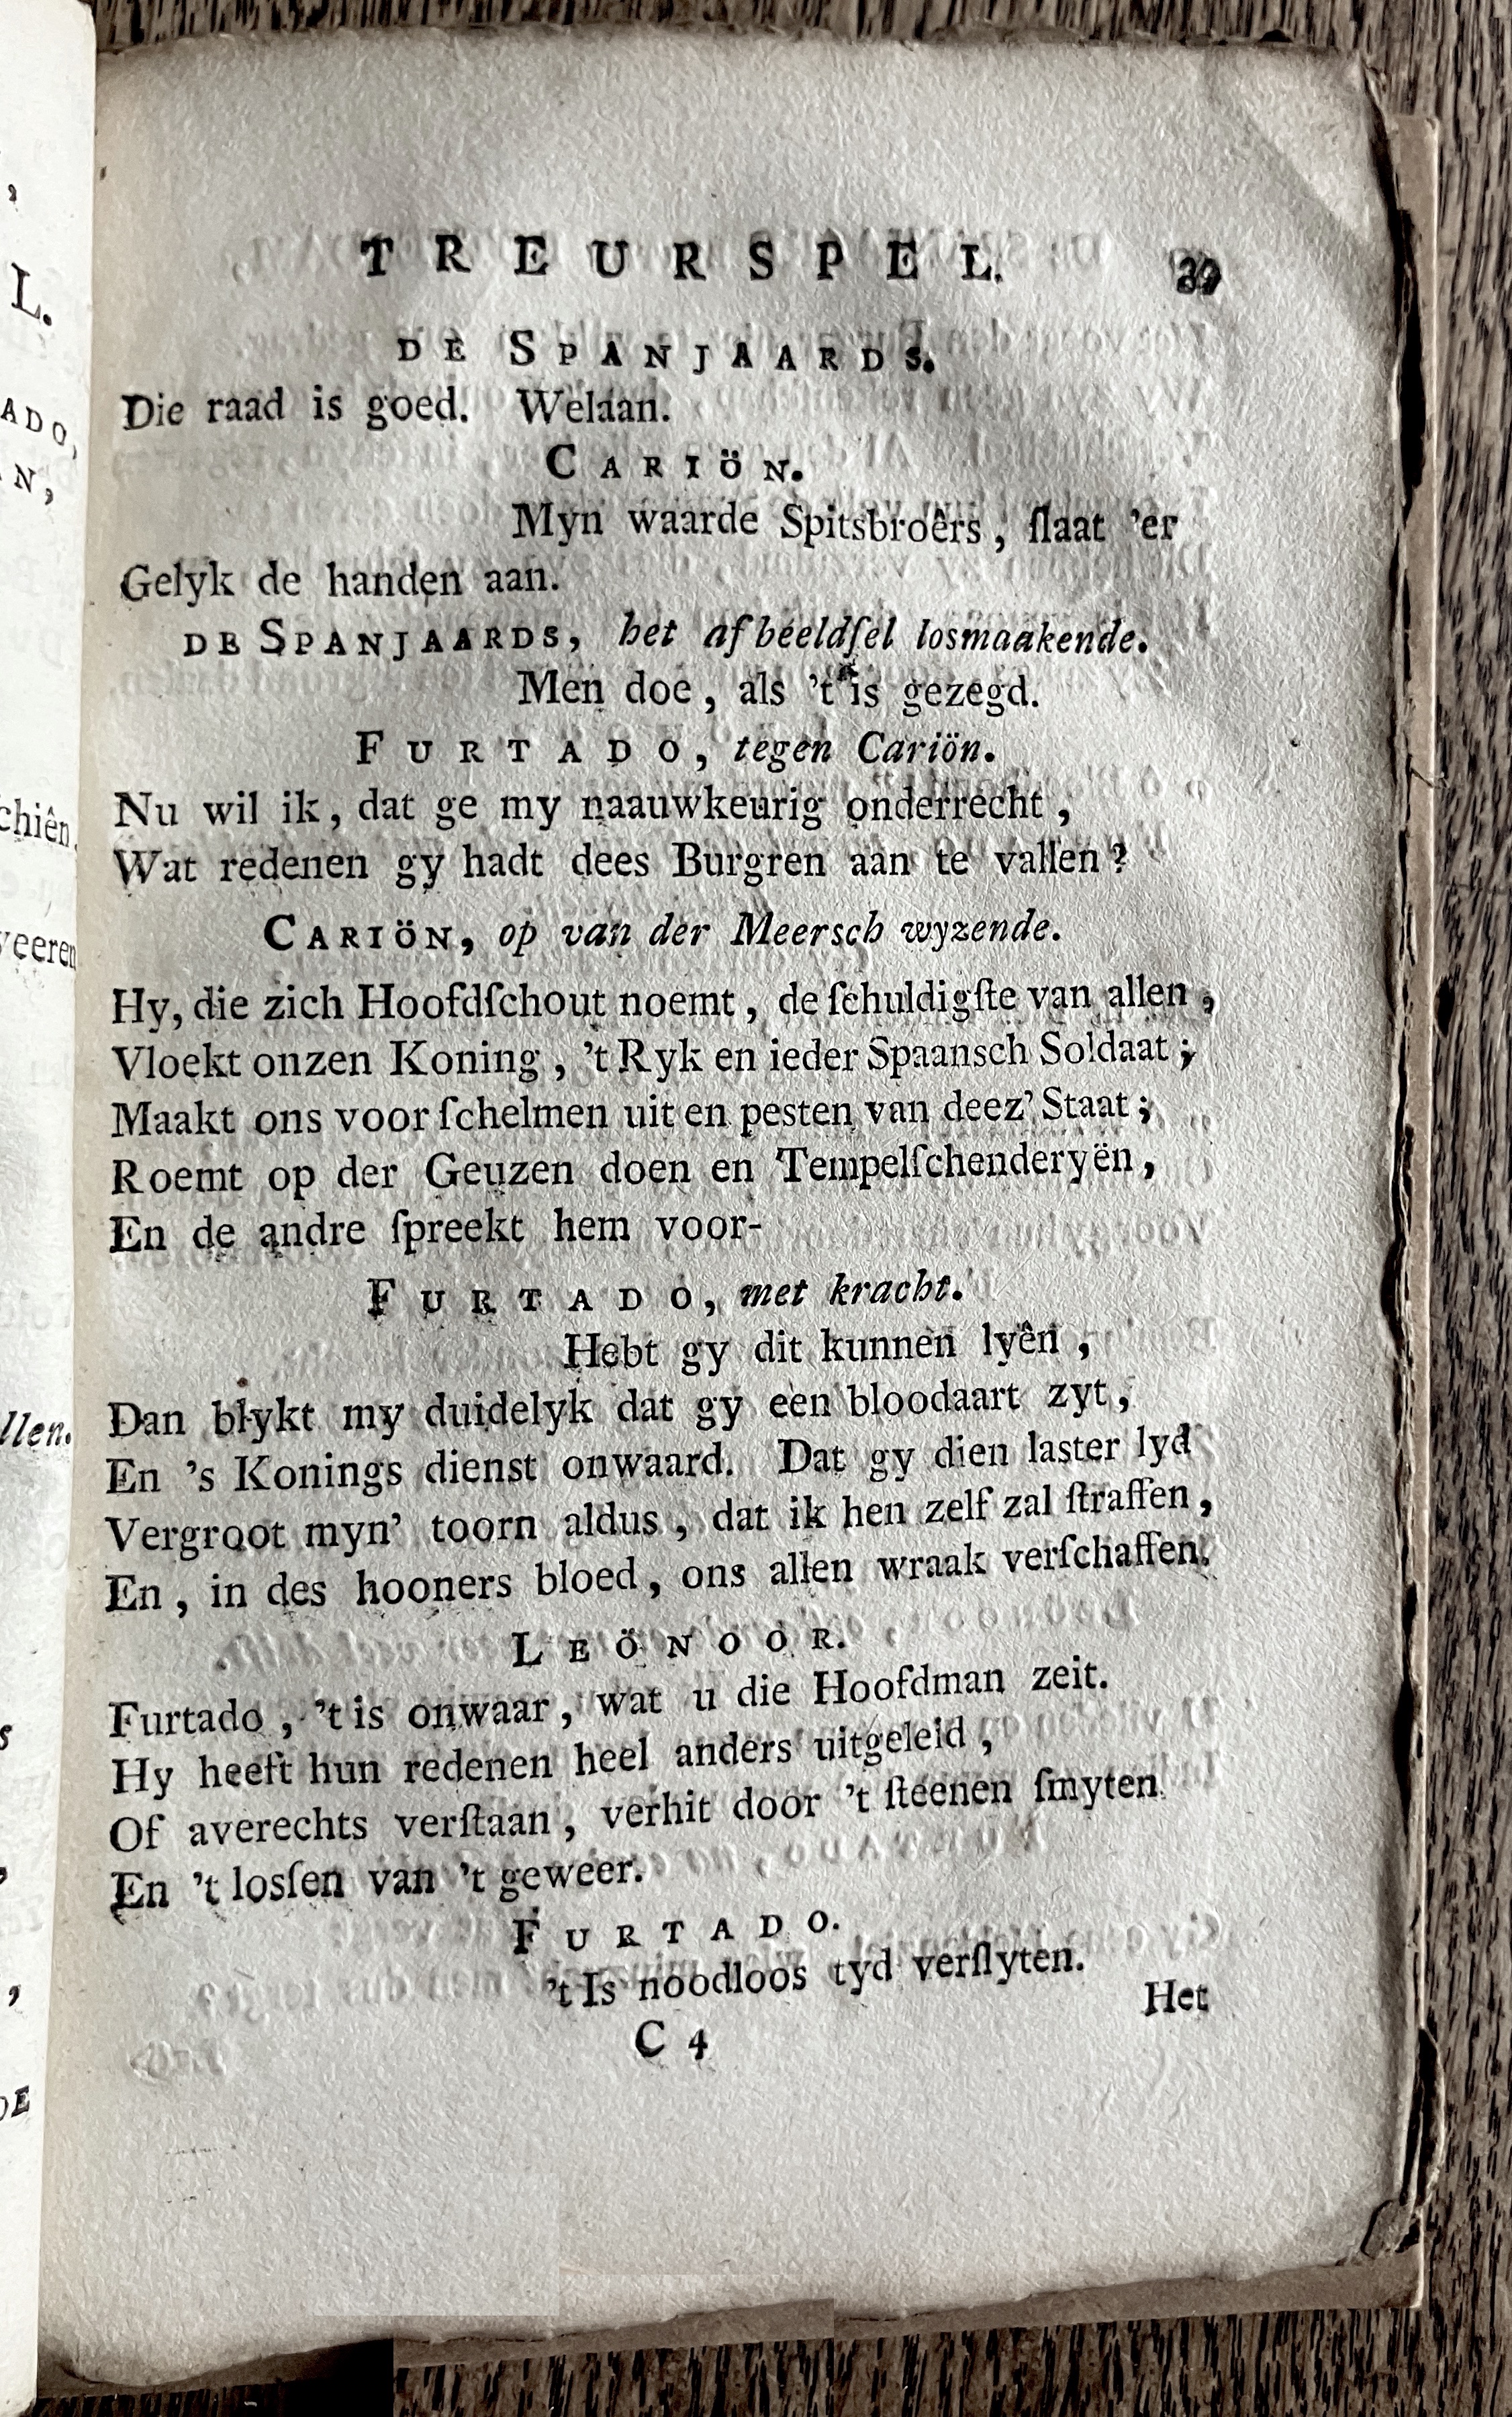 TREURSPEL. 39
DE SPANJAARDS.
Die raad is goed. Welaan.
CARIÖN.
Myn waarde Spitsbroêrs, ſlaat 'er
Gelyk de handen aan.
DE SPANJAARDS, het afbeeldſel losmaakende.
Men doe, als 't is gezegd.
FURTADO, tegen Cariön.
Nu wil ik, dat ge my naauwkeurig onderrecht,
Wat redenen gy hadt dees Burgren aan te vallen?
CARIÖN, op van der Meersch wyzende.
Hy, die zich Hoofdſchout noemt, de ſchuldigſte van allen,
Vloekt onzen Koning, 't Ryk en ieder Spaansch Soldaat;
Maakt ons voor ſchelmen uit en pesten van deez' Staat;
Roemt op der Geuzen doen en Tempelſchenderyën,
En de andre ſpreekt hem voor-
FURTADO, met kracht.
Hebt gy dit kunnen lyên,
Dan blykt my duidelyk dat gy een bloodaart zyt,
En 's Konings dienst onwaard. Dat gy dien laster lyd
Vergroot myn' toorn aldus, dat ik hen zelf zal ſtraffen,
En, in des hooners bloed, ons allen wraak verſchaffen.
LEÖNOOR.
Furtado, 't is onwaar, wat u die Hoofdman zeit.
Hy heeft hun redenen heel anders uitgeleid,
Of averechts verſtaan, verhit door 't ſteenen ſmyten
En 't losſen van 't geweer.
FURTADO.
't Is noodloos tyd verſlyten.
Het
C 4